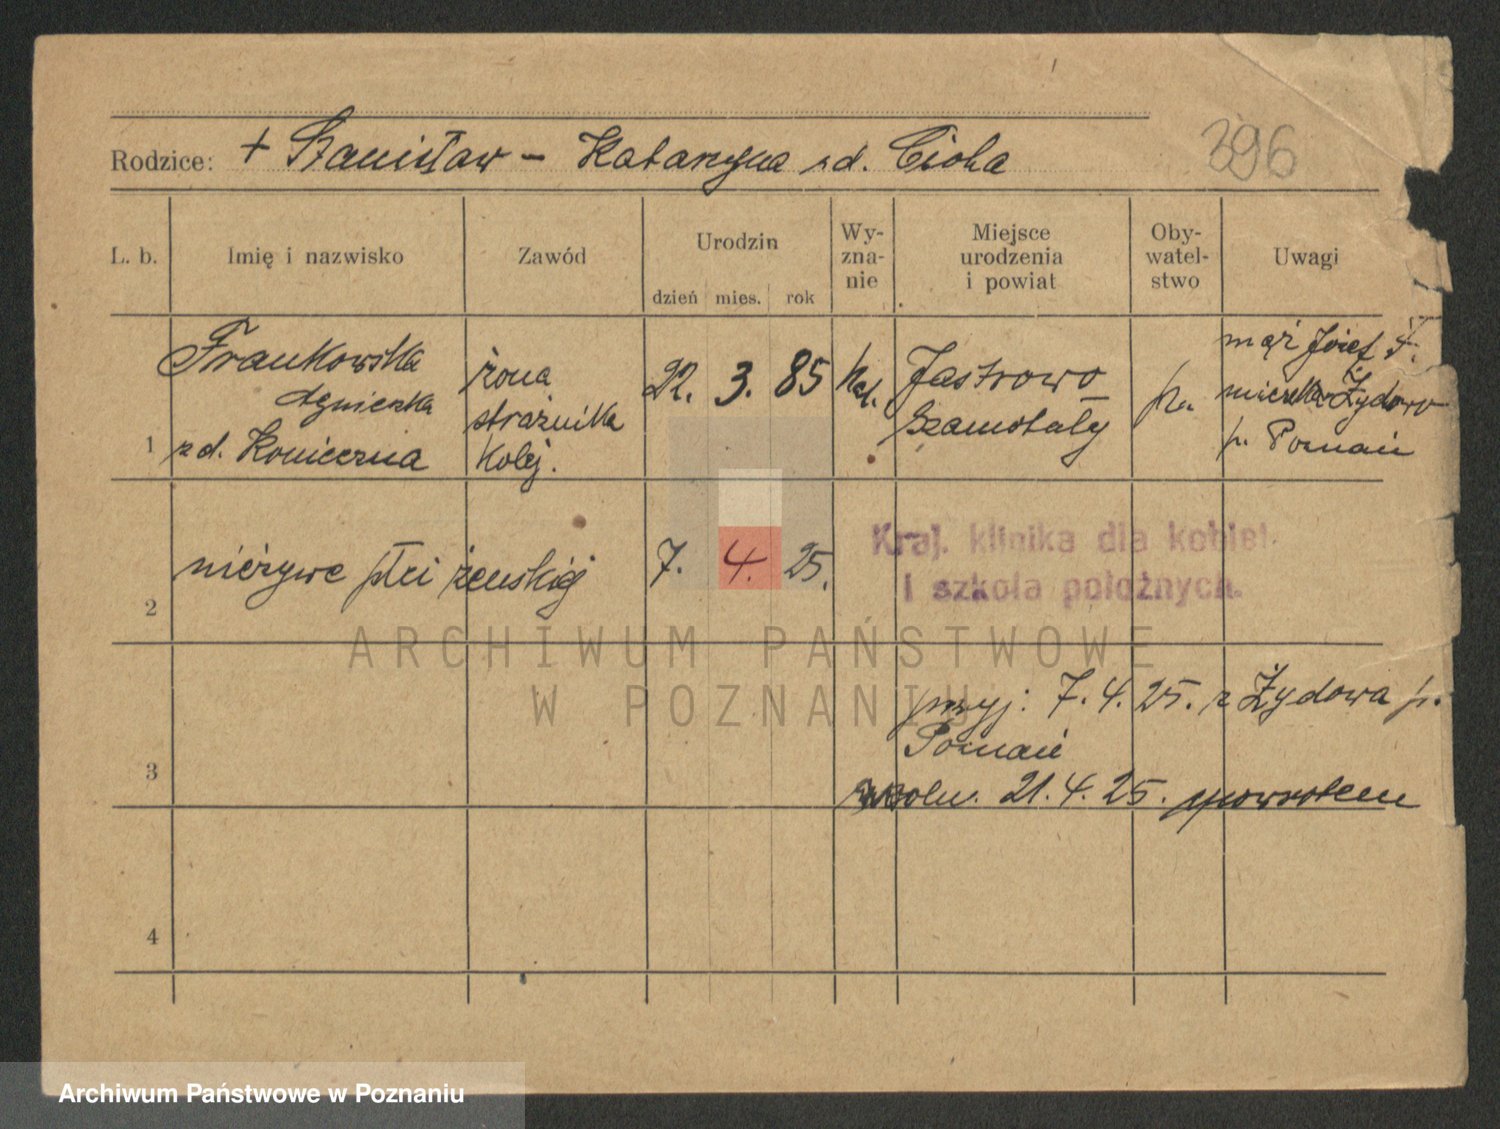 Rodzice: + Stanisław – Katarzyna zd. Cicha
396
L. b. Imię i nazwisko Zawód Urodzin dzień mies. rok Wy-zna-nie Miejsce urodzenia i powiat Oby-watel-stwo Uwagi
1
Frankowska
Agnieszka
zd. Konieczna
żona
strażnika
kolej.
22. 3. 85
kat.
Jastrowo
Szamotuły
mąż Józef F.
mieszka Żydowo
p. Poznań
2
nieżywe płci żeńskiej
7. 4. 25.
Kraj. klinika dla kobiet
i szkoła położnych.
ARCHIWUM PAŃSTWOWE
W POZNANIU
3
przyj: 7. 4. 25. z Żydowa p.
Poznań
zwoln. 21. 4. 25. powrotem
4
Archiwum Państwowe w Poznaniu